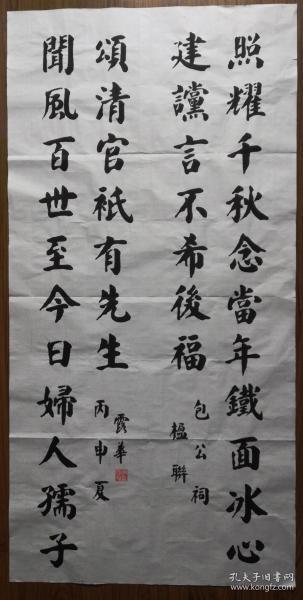 照耀千秋念當年鐵面冰心
建讜言不希後福
包公祠
楹聯
聞風百世至今日婦人孺子
頌清官祇有先生
露華
丙申夏
孔夫子旧书网